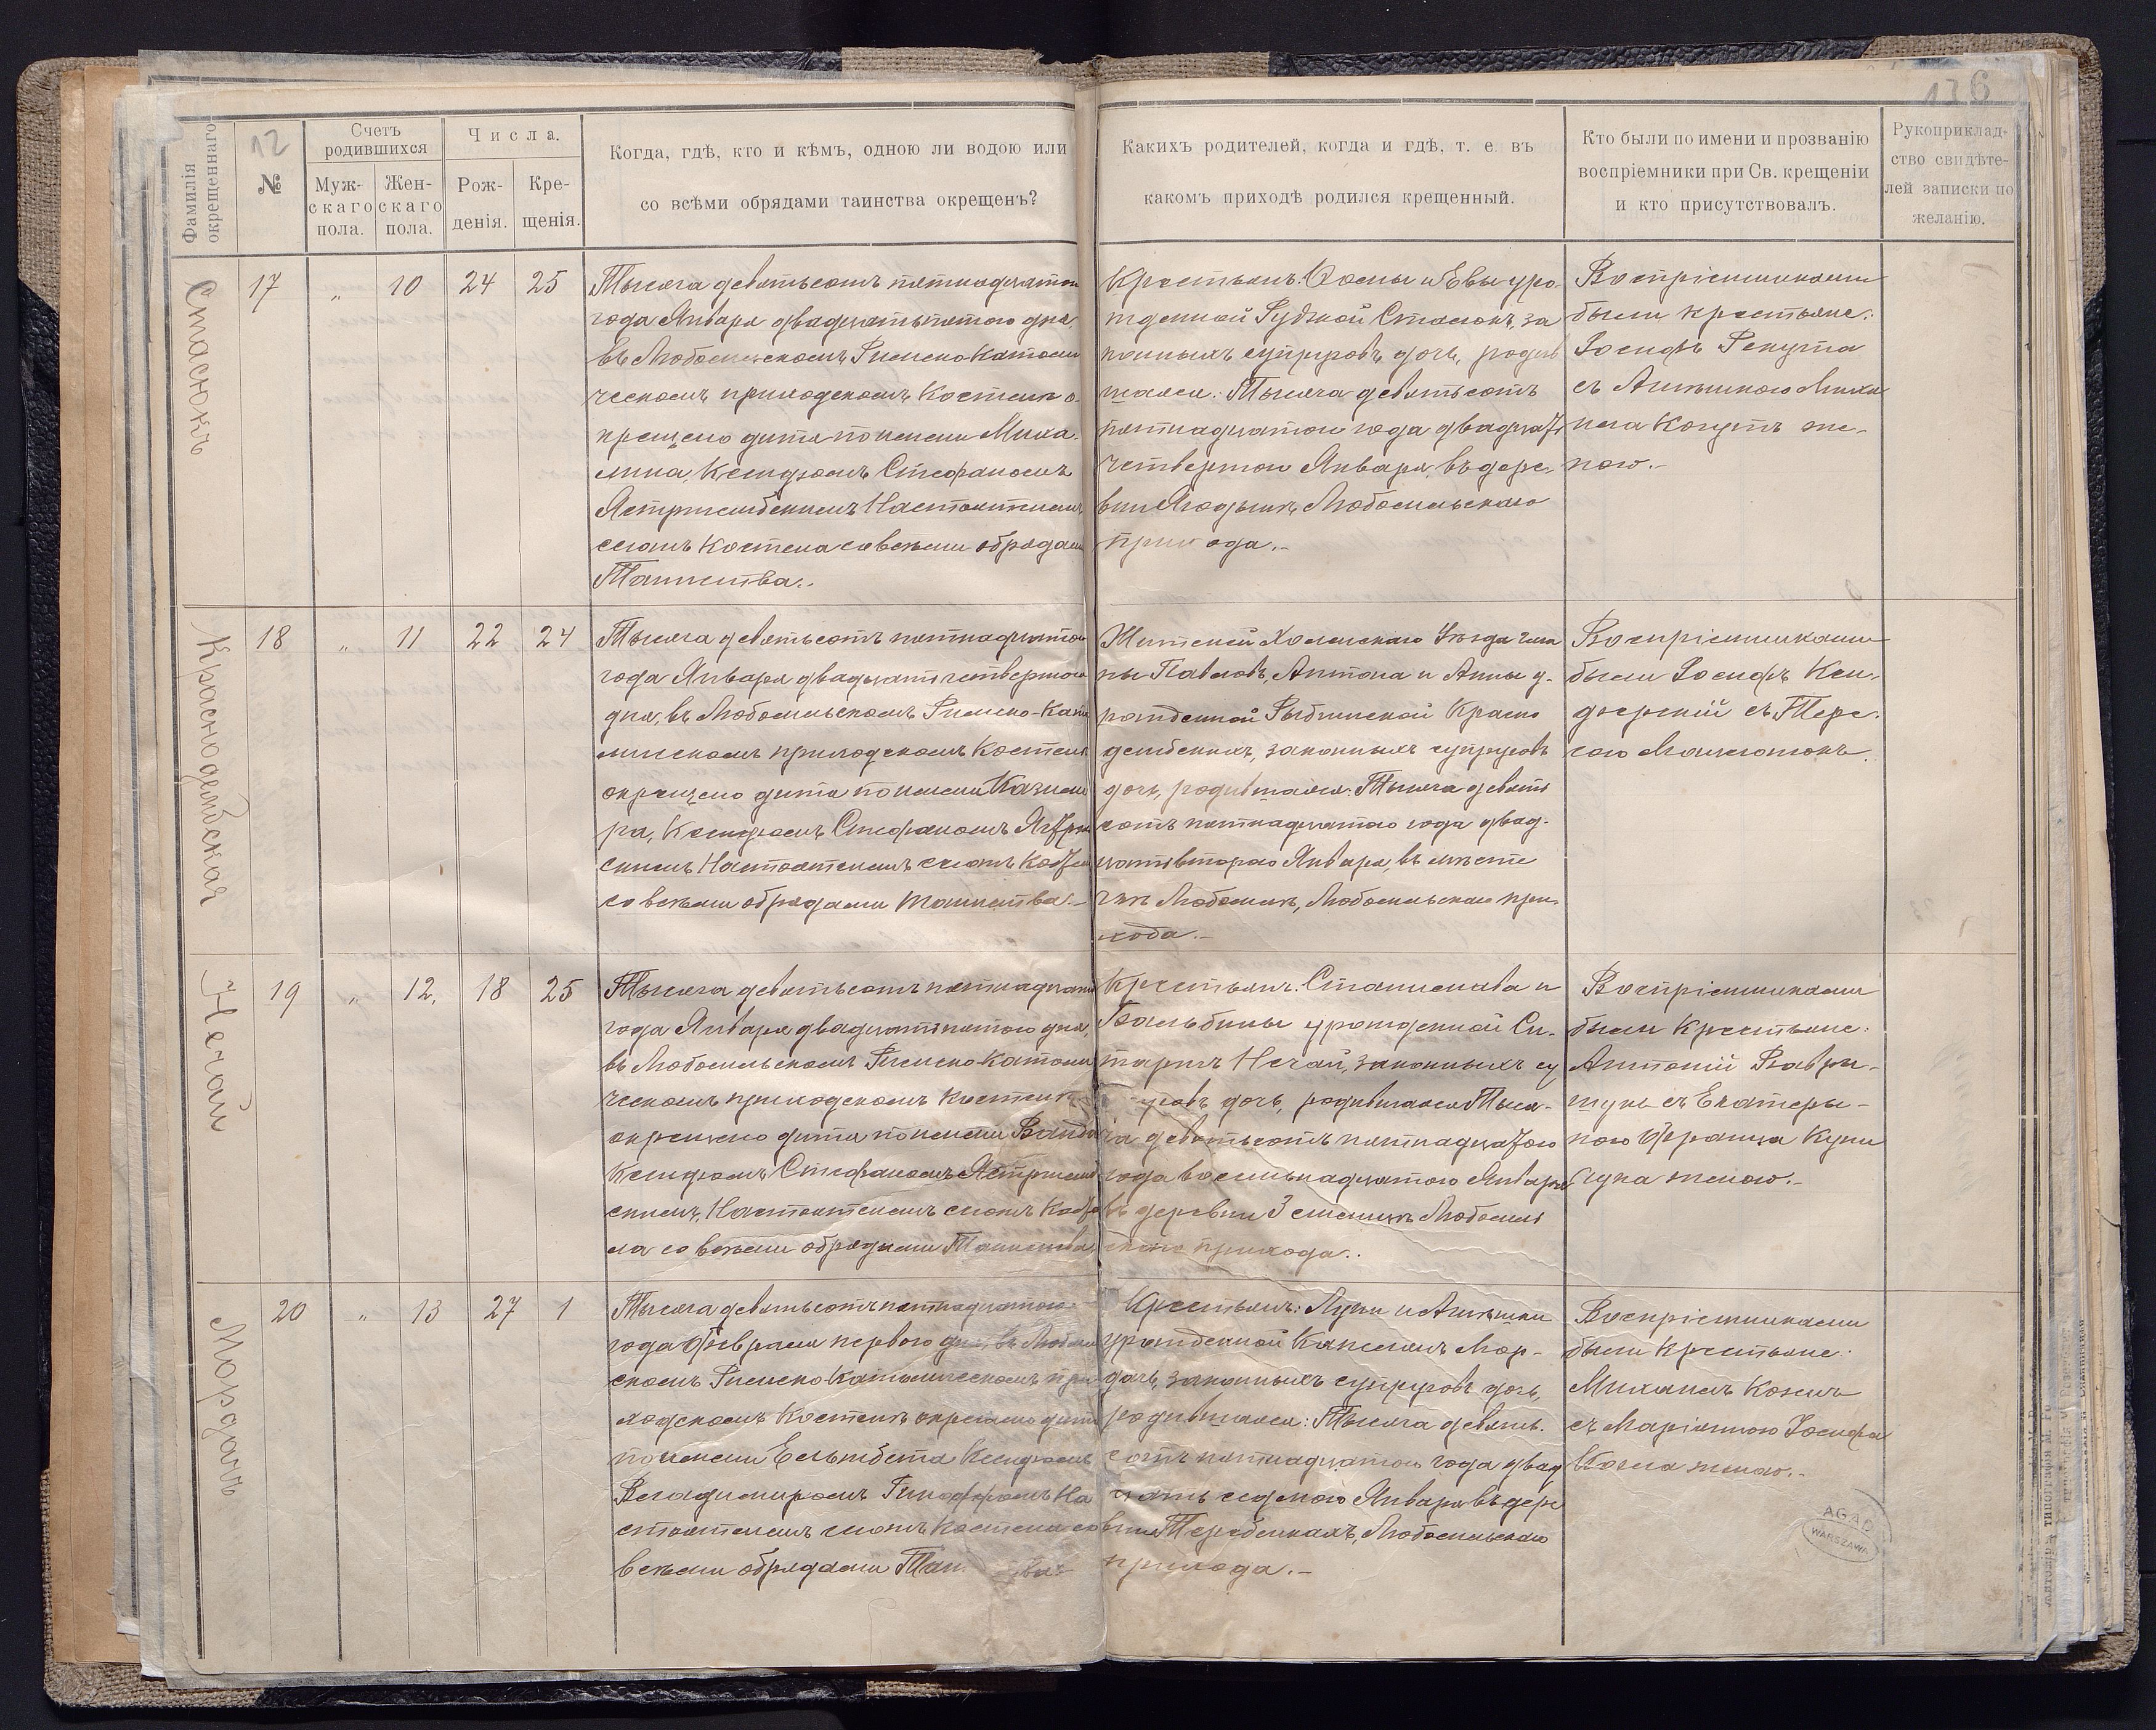 12
136
Фамилія
окрещеннаго
№
Счетъ
родившихся
Муж-
скаго
пола.
Жен-
скаго
пола.
Числа.
Рож-
денія.
Кре-
щенія.
Когда, гдѣ, кто и кѣмъ, одною ли водою или
со всѣми обрядами таинства окрещенъ?
Какихъ родителей, когда и гдѣ, т. е. въ
какомъ приходѣ родился крещенный.
Кто были по имени и прозванію
воспріемники при Св. крещеніи
и кто присутствовалъ.
Рукоприклад-
ство свидѣте-
лей записки по
желанію.
Стасюкъ
17 „ 10 24 25
Тысяча девятьсотъ пятнадцатаго
года Января двадцатьпятого дня,
въ Любомльскомъ Римско Католи
ческомъ приходскомъ Костелѣ о-
крещено дитя по имени Миха-
лина, Ксендзомъ Стефаномъ
Ястржембскимъ Настоятелемъ
сего Костела со всѣми обрядами
Таинства.
Крестьянъ: и Евы уро-
жденной Стасюкъ, за
конныхъ супруговъ дочь, родив
шаяся: Тысяча девятьсотъ
пятнадцатого года двадцать
четвертого Января, въ дерев-
вни Ягодынѣ, Любомльскаго
прихода.-
Воспріемниками
были крестьяне:
Іосифъ Рекута
съ Михаи
ла Когутъ же-
ною.-
Краснодембская
18 „ 11 22 24
Тысяча девятьсотъ пятнадцатого
года Января двадцать четвертого
дня, въ Любомльскомъ Римско-Като
лическомъ приходскомъ Костелѣ
окрещено дитя по имени Казими
ра, Ксендзомъ Стефаномъ
скимъ Настоятелемъ
со всѣми обрядами Таинства.-
Жителей Холмскаго Уѣзда гми
ны Павловъ, Антона и Анны у-
рожденной Рыбинской Красно
дембскихъ, законныхъ супруговъ
дочь, родившаяся: Тысяча девять
сотъ пятнадцатаго года двад-
цатьвтораго Января, въ мѣсте
чкѣ Любомлѣ, Любомльскаго при-
хода.-
Воспріемниками
были Іосифъ Кен-
дзерскій съ Тере-
сою
Нечай
19 „ 12, 18 25
Тысяча девятьсотъ пятнадцатаго
года Января двадцатьпятого дня,
въ Любомльскомъ Римско Католи
ческомъ приходскомъ Костелѣ
окрещено дитя по имени Ванда
Ксендзомъ Стефаномъ Ястржемб
скимъ, Настоятелемъ
ла со всѣми обрядами Таинства
Крестьянъ: Станислава и
Бальбины урожденной Си-
тарчъ Нечай, законныхъ су
говъ дочь, родившаяся Тыся-
ча девятьсотъ пятнадцатого
года восемьнадцатого Января
въ деревни Любомль
скаго прихода..
Воспріемниками
были Крестьяне:
Антоній Ваври-
щукъ съ Екатеры-
ною Франца Купи
щука женою.-
Мордачъ
20 „ 13 27 1
Тысяча девятьсотъ пятнадцатого
года Февраля первого дня, въ Любомль
скомъ Римско Католическомъ при
ходскомъ Костелѣ окрещено дитя
по имени Ельжбета Ксендзомъ
Владимиромъ На
стоятелемъ Костела со
всѣми обрядами Таинства
Крестьянъ: Луки и Агнѣшки
урожденной Мор-
дачъ, законныхъ супруговъ дочь,
родившаяся: Тысяча девять-
сотъ пятнадцатого года двад
цать седмого Января въ дере
вни Теребейкахъ, Любомльскаго
прихода.-
Воспріемниками
были Крестьяне:
Михаилъ Козелъ
съ Маріянною Іосифа
Козла женою.-
AGAD
WARSZAWA